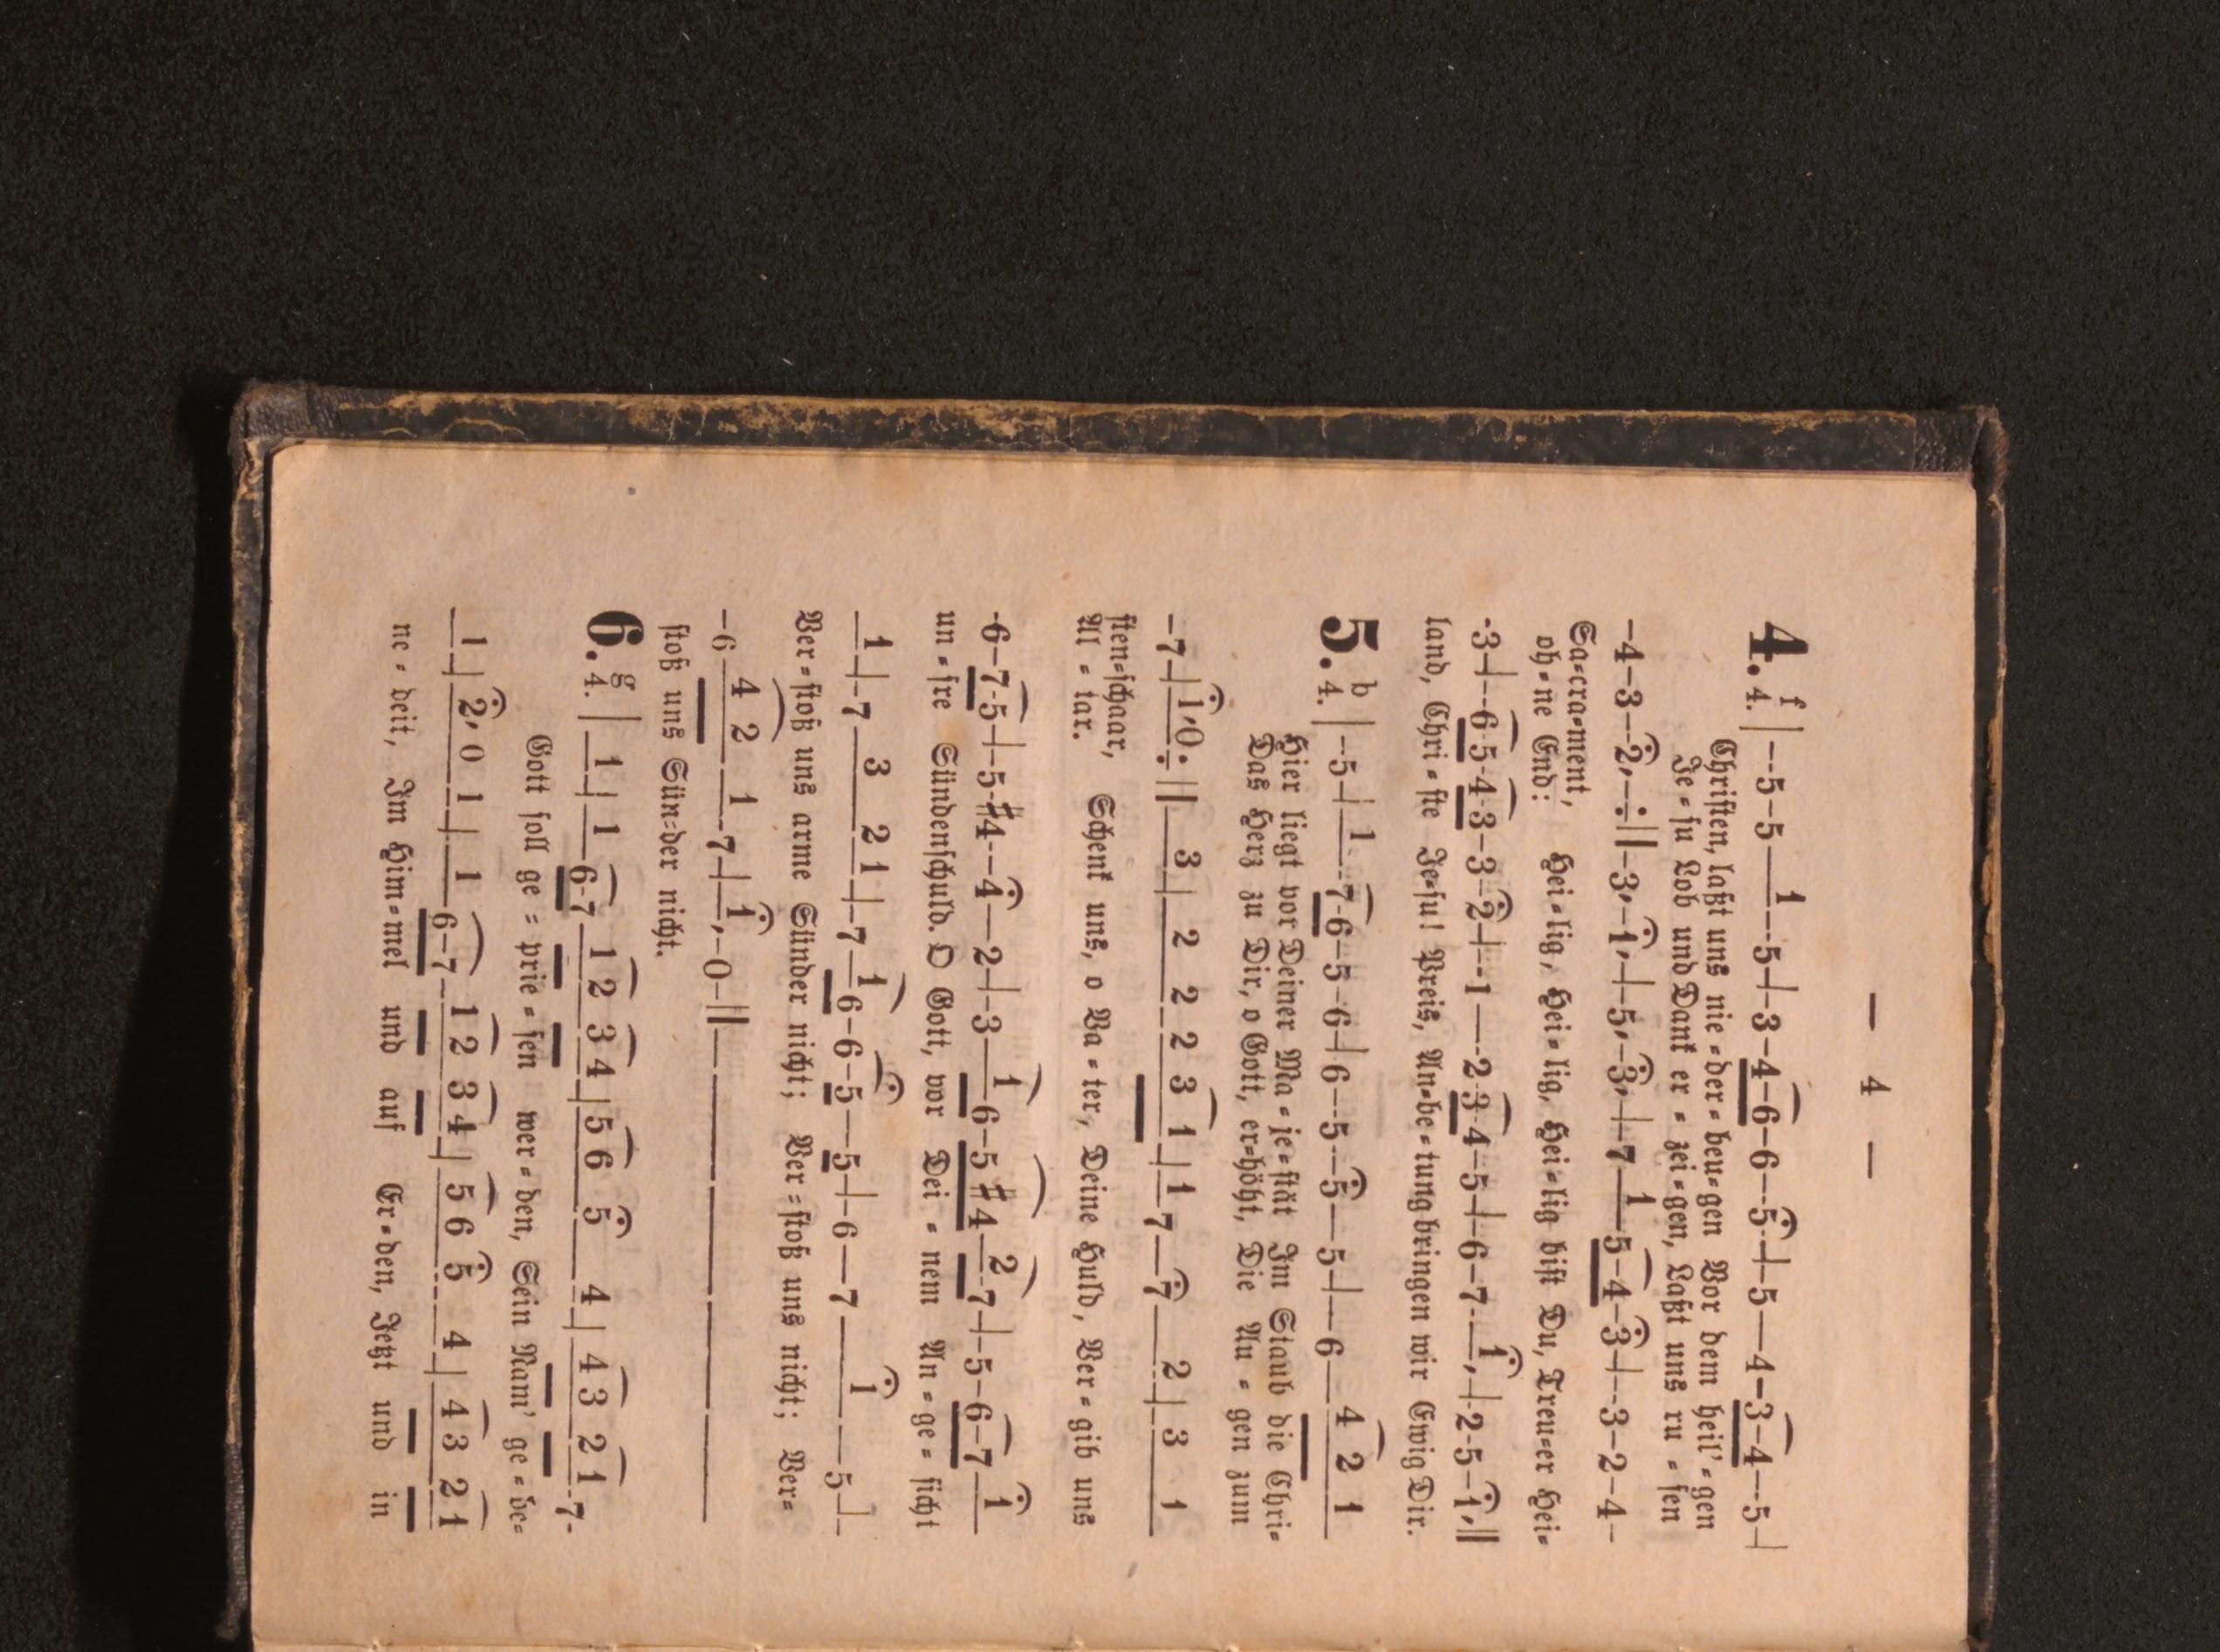 — 4 —
4. f 4. |--5-5—1--5-|-3-4-6-6--5-|-5—4-3-4--5-|
Christen, laßt uns nie=der=beu=gen Vor dem heil'=gen
Je=su Lob und Dank er=zei=gen, Laßt uns ru=fen
-4-3-2,-÷||-3,-1,-|-5,-3,-|-7—1—5-4-3-|--3-2-4-
Sa=cra=ment,
oh=ne End: Hei=lig, Hei=lig, Hei=lig bist Du, Treu=er Hei=
-3-|--6-5-4-3-3-2-|--1—-2-3-4-5-|-6-7--1,-|-2-5-1,||
land, Chri=ste Je=su! Preis, An=be=tung bringen wir Ewig Dir.
5. b 4. |--5-|—1--7-6-5-6-|-6--5--5—5-|--6—4 2 1
Hier liegt vor Deiner Ma=je=stät Im Staub die Chri=
Das Herz zu Dir, o Gott, er=höht, Die Au=gen zum
-7-|1,0.÷||—3—|—2 2 2 3 1—|—1-7—7—2—|-3 1
sten=schaar,
Al=tar. Schenk uns, o Va=ter, Deine Huld, Ver=gib uns
-6-7-5-|-5-♯4--4—2-|-3—1-6-5♯4—2-7-|-5-6-7—1
un=sre Sündenschuld. O Gott, vor Dei=nem An=ge=sicht
1-|-7—3—2 1-|-7-1-6-6-5—5-|-6—7—1—5-|
Ver=stoß uns arme Sünder nicht; Ver=stoß uns nicht; Ver=
-6—4 2—1-7-|-1,-0-||————
stoß uns Sün=der nicht.
6. g 4. |—1-|—1—6-7—1 2 3 4—|5 6 5 4—|—4 3 2 1-7-
Gott soll ge=prie=sen wer=den, Sein Nam' ge=be=
1—|—2,0 1—|—1—6-7—1 2 3 4—|—5 6 5 4—|—4 3 2 1
ne=deit, Im Him=mel und auf Er=den, Jetzt und in